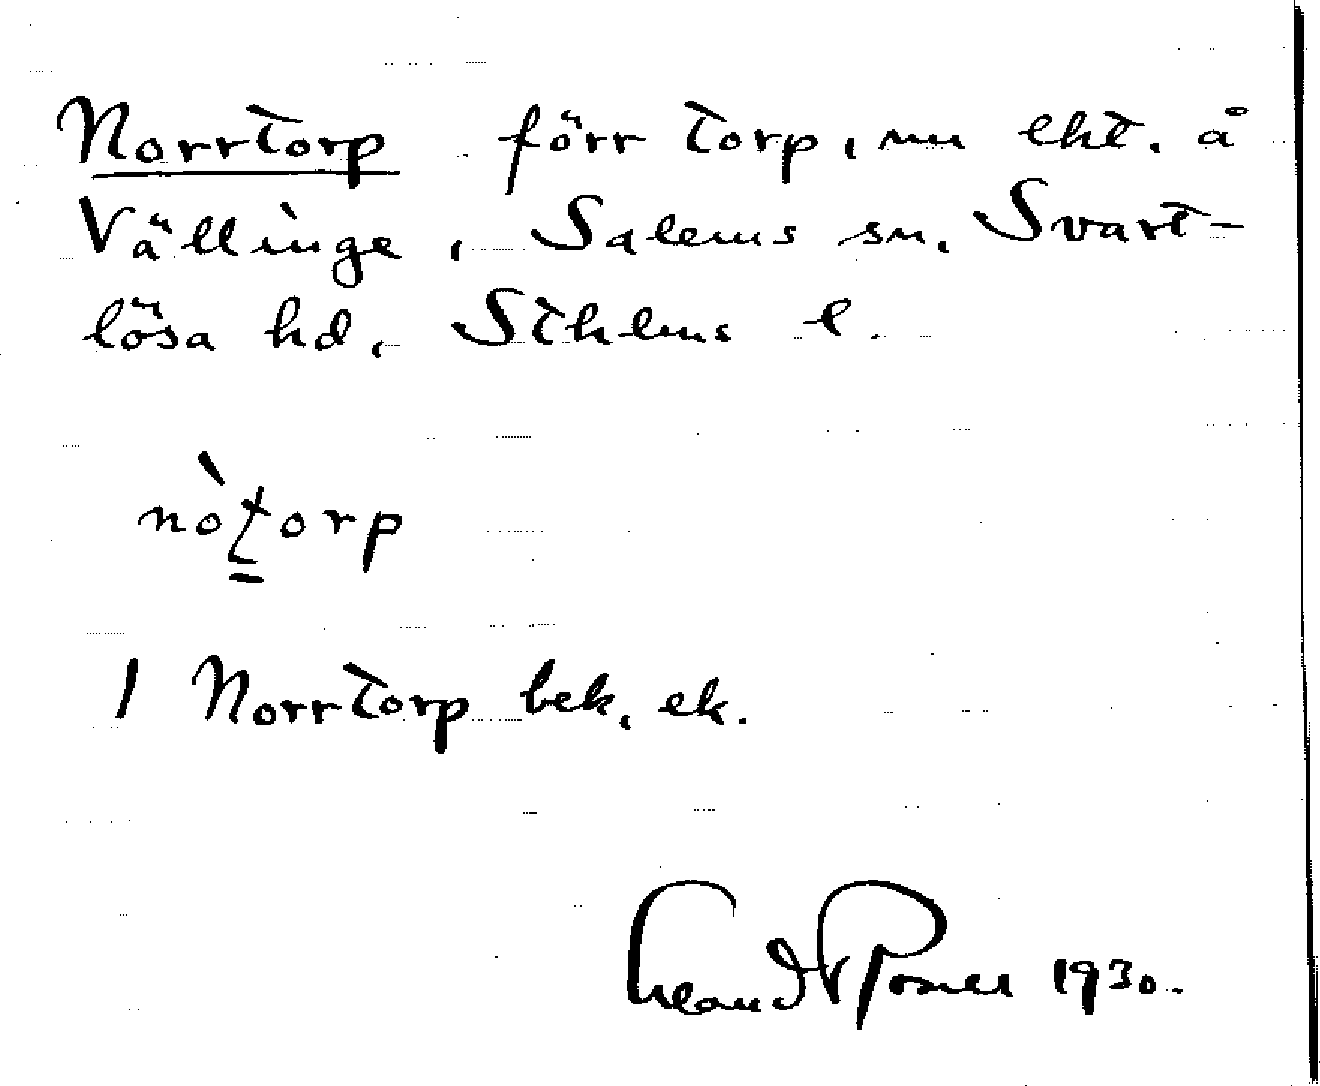 Norrtorp förr torp, nu lht. å
Vällinge, Salems sn. Svart-
lösa hd, Sthlms l.
nòtorp
/ Norrtorp bek, ek.
1930.